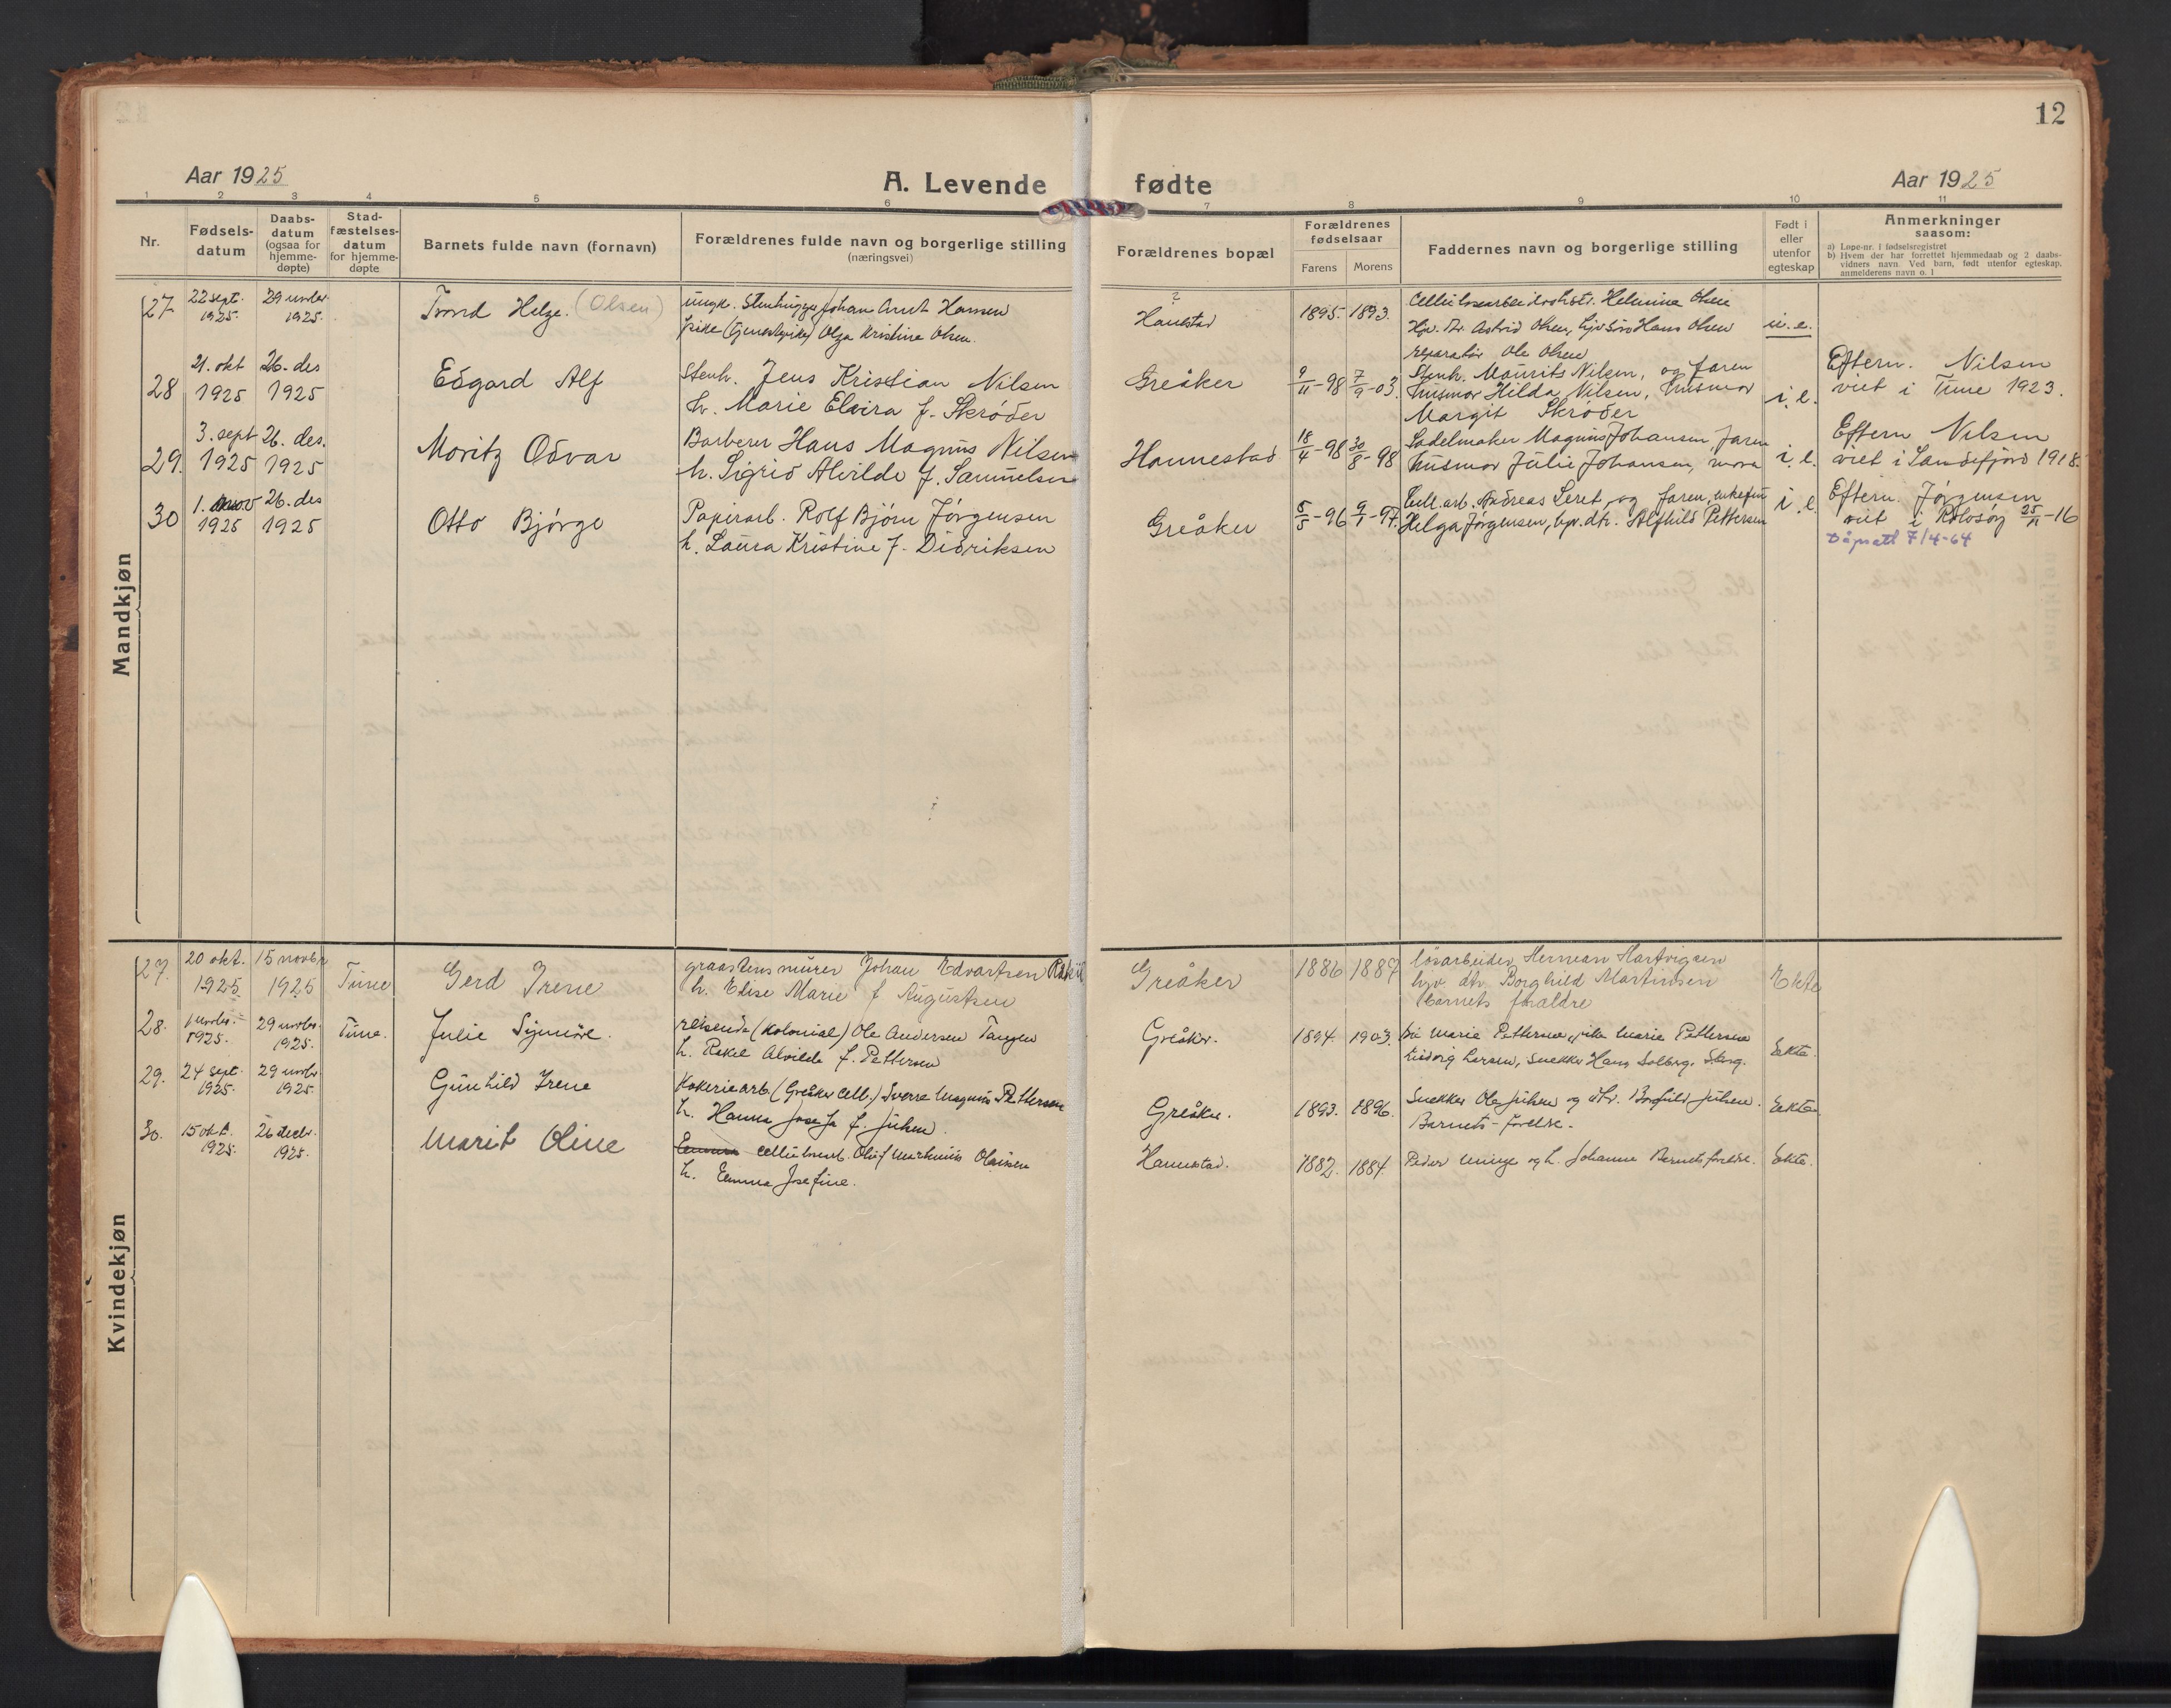 12
Aar 1925
A. Levende fødte
Aar 1925
1 2 3 4 5 6 7 8 9 10 11
Nr.
Fødsels-
datum
Daabs-
datum
(ogsaa for
hjemme-
døpte)
Stad-
fæstelses-
datum
for hjemme-
døpte
Barnets fulde navn (fornavn)
Forældrenes fulde navn og borgerlige stilling
(næringsvei)
Forældrenes bopæl
Forældrenes
fødselsaar
Farens Morens
Faddernes navn og borgerlige stilling
Født i
eller
utenfor
egteskap
Anmerkninger
saasom:
a) Løpe-nr. i fødselsregistret
b) Hvem der har forrettet hjemmedaab og 2 daabs-
vidners navn. Ved barn, født utenfor egteskap,
anmelderens navn o. l
Mandkjøn
27 22 sept. 1925. 29 novbr. 1925.
Trond Helge. (Olsen)
ungk. Stenhugger Johan Arnt Hansen
pike (tjenestepike) Olga Kristine Olsen.
Hanestad
1895. 1893.
Helmine Olsen
Astrid Olsen, Hans Olsen
reparatør Ole Olsen
u. e.
28 21. okt 1925 26. des 1925
Edgard Alf
Stenh. Jens Kristian Nilsen
h. Marie Elvira f. Skrøder
Greåker
9/11-98 7/9-03.
Stenh. Maurits Nilsen, og faren
husmor Hilda Nilsen, husmor
Margit Skrøder
i. e.
Eftern. Nilsen
viet i Tune 1923.
29. 3. sept 1925 26. des. 1925
Moritz Odvar
Barberer Hans Magnus Nilsen
h. Sigrid Alvilde f. Samuelsen
Hannestad
18/4-98 30/8-98
Sadelmaker Magnus Johansen faren
husmor Julie Johansen, mora
i. e.
Eftern Nilsen
viet i Sandefjord 1918.
30 1. nov 1925 26. des 1925
Otto Bjørge
Papirarb. Rolf Bjørn Jørgensen
h. Laura Kristine f. Didriksen
Greåker
5/5-96 9/1-97.
Cell. arb. Andreas Leret og faren, enkefru
Helga Jørgensen, hpv. dtr. Alfhild Pettersen
i. e.
Eftern. Jørgensen
viet i Rolvsøy 25/11-16
Dåpsatt 7/4-64
Kvindekjøn
27. 20 okt. 1925 15 novbr 1925 Tune
Gerd Irene
graastensmurer Johan Edvartsen
h. Elise Marie f Augustsen
Greåker
1886 1887
løsarbeider Herman Hartvigsen
hjv. dtr. Borghild Martinsen
Barnets forældre
Ekte
28. 1 novbr. 1925. 29 novbr. 1925. Tune.
Julie Synnøve.
reisende (kolonial) Ole Andersen Tangen
h. Rakel Alvilde f. Pettersen
Greåker.
1894. 1903.
Marie Pettersen, pike Marie Pettersen
Ludvig Larsen, snekker Hans Solberg.
Ekte.
29. 24 sept. 1925. 29 novbr 1925.
Gunhild Irene
Kokeriearb. (Greåker cell.) Sverre Magnus Pettersen
h. Hanna Josefa f. Julsen.
Greåker.
1893. 1896.
Snekker Ole Julsen og dtr. Borghild Julsen.
Barnets forelre.
Ekte
30. 15 okt. 1925. 26 decbr. 1925.
Marit Oline
Cellulosearb. Oluf Markmin Olaisen
h. Emma Josefine.
Hannestad.
1882. 1884.
Peder og h. Johanne Barnets forelre.
Ekte.